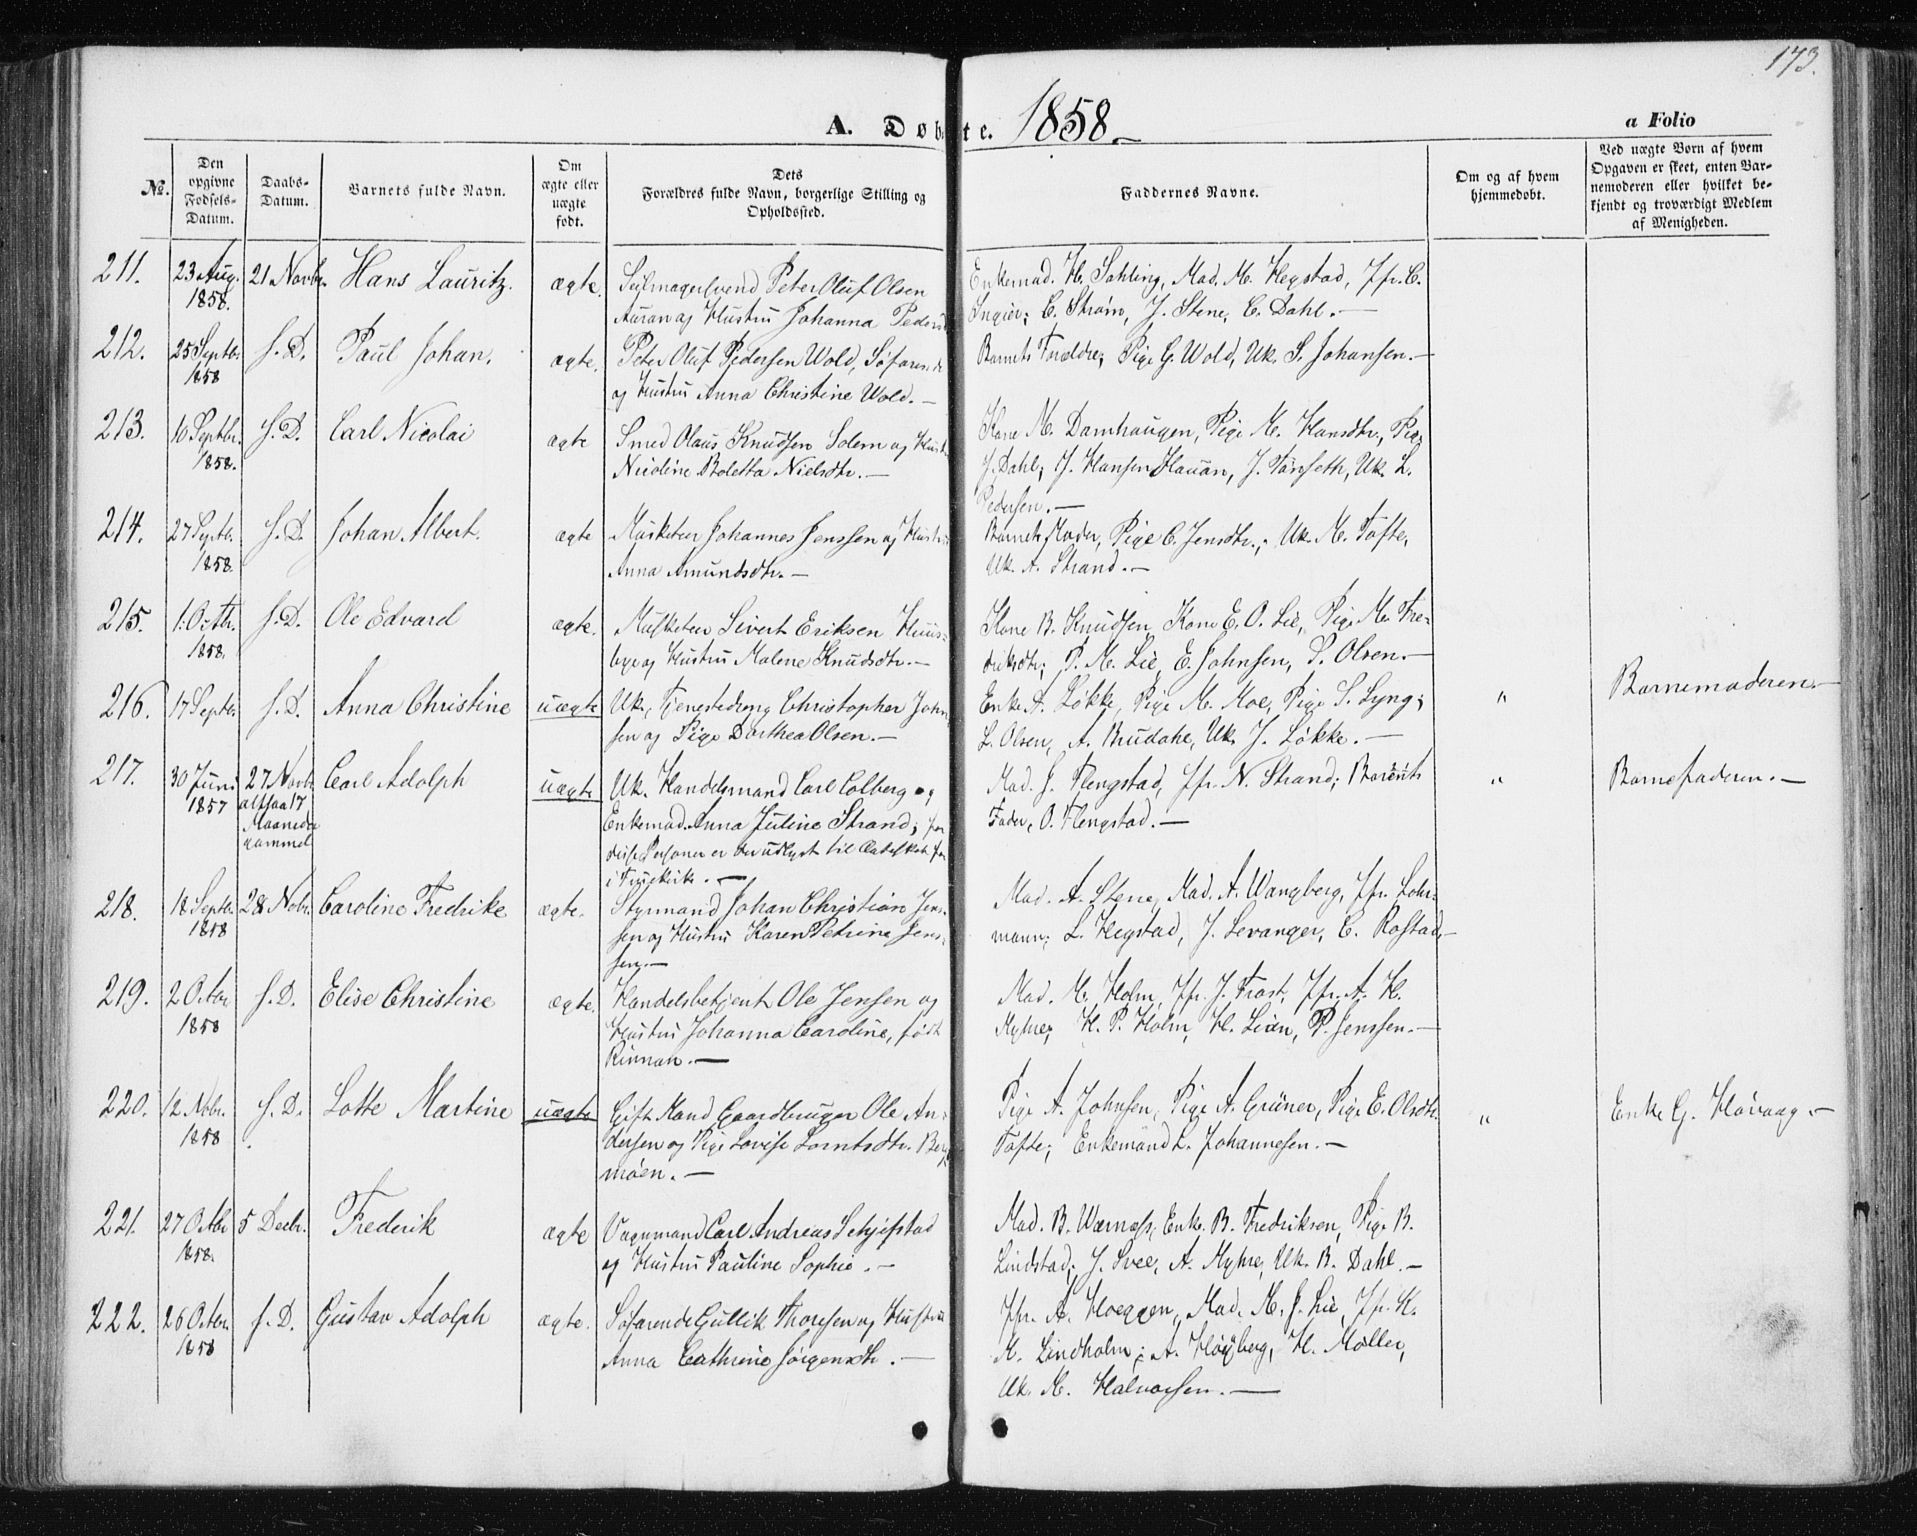 173.
A. Døbte. 1858.-
a Folio
No.
Den opgivne Fødsels-Datum.
Daabs-Datum.
Barnets fulde Navn.
Om ægte eller uægte født.
Dets Forældres fulde Navn, borgerlige Stilling og Opholdssted.
Faddernes Navne.
Om og af hvem hjemmedøbt.
Ved uægte Børn af hvem Opgaven er skeet, enten Barnemoderen eller hvilket bekjendt og troværdigt Medlem af Menigheden.
211. 23 Aug. 21 Novbr. Hans Lauritz. ægte. Seilmagersvend Peter Oluf Olsen Enkemad. H. Sahling, Mad. M. Hegstad, Jfr. C.
1858. Auran og Hustru Johanna Peders C. Strøm, J. Stene, C. Dahl.-
212. 25 Septbr. s. D. Paul Johan. ægte. Peter Oluf Pedersen Wold, Søfarende Barnets Forældre; Pige G. Wold, Uk. S. Johansen.-
1858 og Hustru Anna Christine Wold.-
213. 10 Septbr. s. D. Carl Nicolai ægte Smed Olaus Knudsen Solem og Hustr Kone M. Damhaugen, Pige M. Hansdtr., Pige
1858. Nicoline Boletta Nielsdtr.- J. Dahl; J. Hansen Hauan, J. Tønseth, Uk. L.
Pedersen.-
214. 27 Septbr. s. D. Johan Albert. ægte Musketeer Johannes Jenssen og Hustru Barnets Moder, Pige C. Jensdtr.; Uk. M. Tofte,
1858. Anna Amundsdtr.- Uk. A. Strand.-
215. 1. Octbr. s. D. Ole Edvard ægte. Musketeer Sivert Eriksen Huus- Kone B. Knudsen, Kone E. O. Lie, Pige M. Fre-
1858. bye og Hustru Malene Knudsdtr.- driksdtr; P. M. Lie, E. Johnsen, P. Olsen.-
216. 17 Septbr. s. D. Anna Christine uægte Uk., Tjenestedreng Christopher John- Enke A. Løkke, Pige M. Moe, Pige S. Lyng; " Barnemoderen.-
sen og Pige Dorthea Olsen.- L. Olsen, A. Brudahe, Uk. J. Løkke.-
217. 30 Juni 27 Novbr. Carl Adolph uægte Uk. Handelsmand Carl Colberg og Mad. J. Flengstad, Jfr. N. Strand; Barnets " Barnefaderen.-
1857 altsaa 17 Enkemad. Anna Juline Strand; for Fader, O. Flengstad.-
Maaneder disse Personer er der udlyst til Ægteskab før
gammel i Fruekirke.-
218. 18 Septbr. 28 Nobr. Caroline Fredrike ægte. Styrmand Johan Christian Jens- Mad. A. Stene, Mad. A. Wangberg, Jfr. Lohr-
1858 sen og Hustru Karen Petrine Jens- mann; L. Hegstad, J. Levanger, C. Rostad,-
sen.-
219. 2 Octbr s. D. Elise Christine ægte. Handelsbetjent Ole Jensen og Mad. M. Holm, Jfr. J. Trost, Jfr. A. H.
1858 Hustru Johanna Caroline, født Myhre; H. P. Holm, H. Lian, P. Jenssen.-
Rinnan.-
220. 12 Nobr. s. D. Lotte Martine uægte Gift Mand Gaardbruger Ole An- Pige A. Johnsen, Pige A. Grüner, Pige E. Olsdtr " Enke G. Havaag.-
1858 dersen og Pige Lovise Lorntsdtr. Berg- Tofte; Enkemand L. Johannesen.-
møen.-
221. 27 Octbr 5 Decbr. Frederik ægte Vognmand Carl Andreas Schjefstad Mad. B. Wærness, Enke B. Fredriksen, Pige B.
1858. og Hustru Pauline Sophie.- Lindstad; J. Svee, A. Myhre, Uk. B. Dahl.-
222. 26 Octbr. s. D. Gustav Adolph ægte. Søfarende Gullik Thoresen og Hustru Jfr. A. Hoeggen, Mad. M. J. Lie, Jfr. K.
1858 Anna Cathrine Jørgensdtr.- M. Lindholm; A. Høyberg, H. Møller,
Uk. M. Halvorsen.-